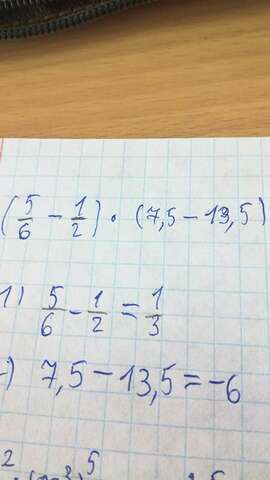 (5/6 - 1/2) · (7,5 - 13,5)
1) 5/6 - 1/2 = 1/3
-) 7,5 - 13,5 = -6